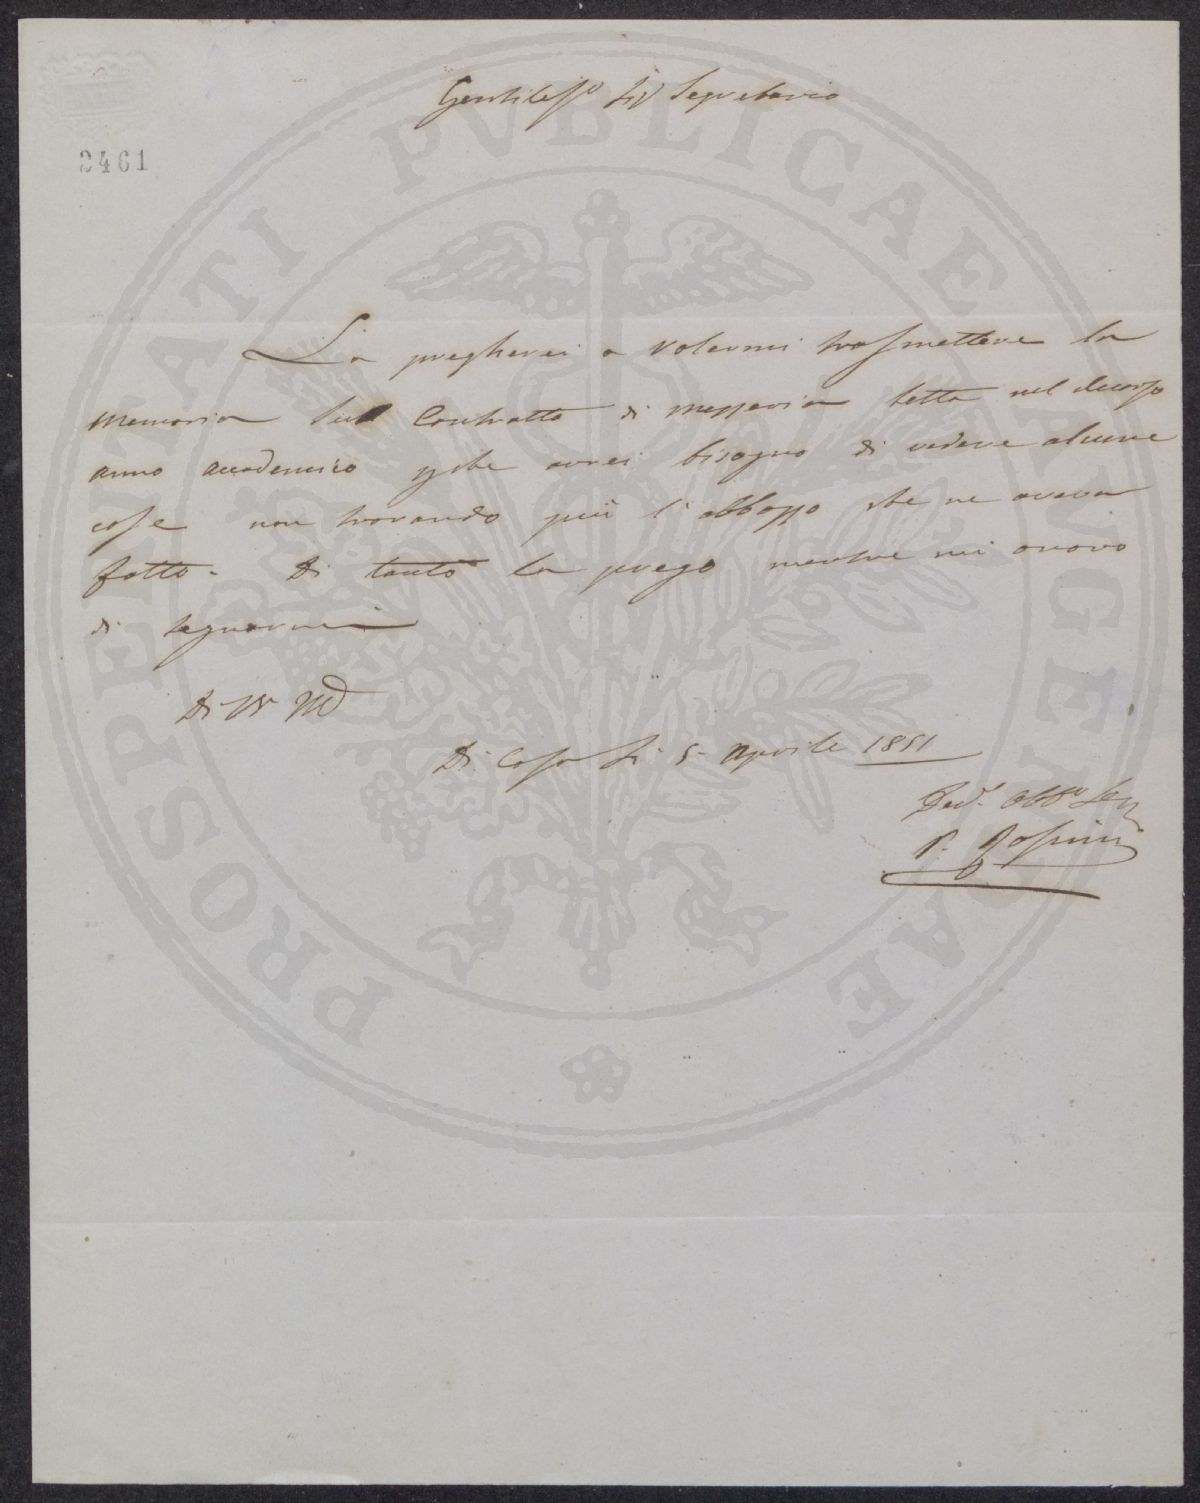 2461
Gentiless.o Sig.r Segretario
La pregherei a volermi trasmettere la
memoria sul Contratto di mezzeria letta nel decorso
anno accademico perche avrei bisogno di vedere alcune
cose non trovando più l'abbozzo che ne aveva
fatto. Di tanto la prego mentre mi onoro
di segnarmi
Di
Di Casa li 5 Aprile 1851
P. Rossini
PROSPERITATI PVBLICAE AVGENDAE